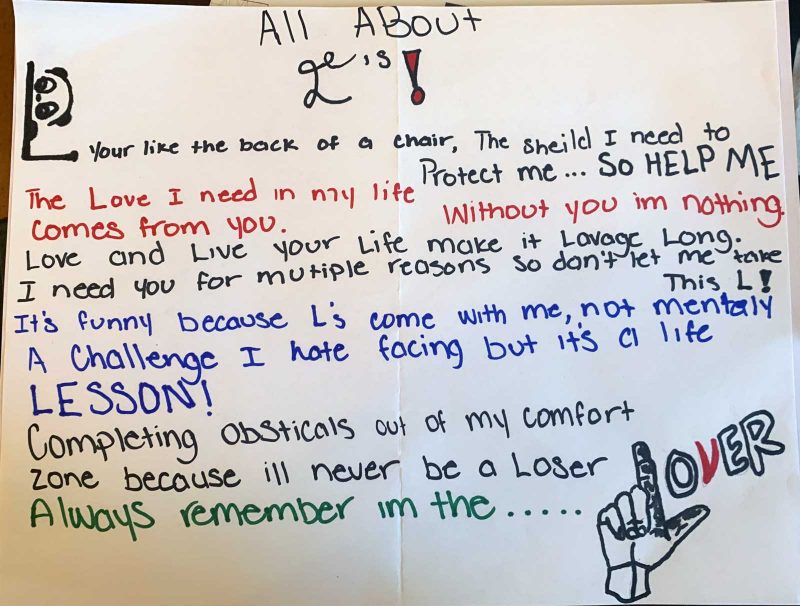 All About
Le's!
Your like the back of a chair, The sheild I need to
Protect me... SO HELP ME
The Love I need in my life
comes from you.
Without you im nothing.
Love and Live your Life make it Lavage Long.
I need you for mutiple reasons so don't let me take
This L!
It's funny because L's come with me, not mentaly
A challenge I hate facing but it's a life
LESSON!
Completing obsticals out of my comfort
zone because ill never be a Loser
Always remember im the.....
LOVER